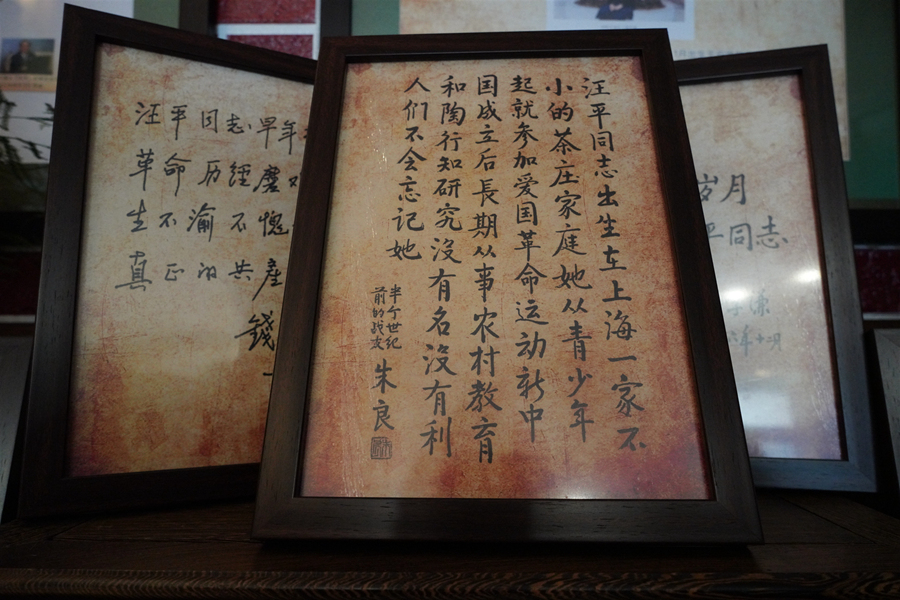 汪平同志早年
革命历经磨
生不渝不愧
真正的共産
錢
汪平同志出生在上海一家不
小的茶庄家庭她从青少年
起就参加爱国革命运动新中
国成立后長期从事农村教育
和陶行知研究沒有名沒有利
人们不会忘记她
半个世纪
前的战友
朱良
岁月
平同志
年十二月